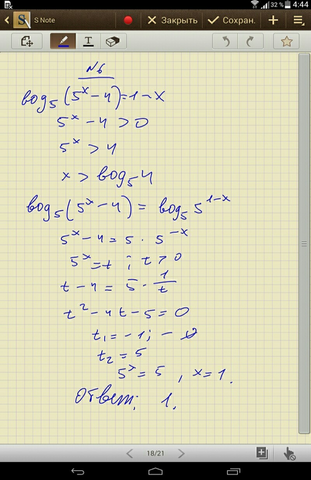 32 % 4:44
S Note
Закрыть
Сохран.
T
N6
log₅(5ˣ-4)=1-x
5ˣ-4>0
5ˣ>4
x>log₅4
log₅(5ˣ-4)=log₅5¹⁻ˣ
5ˣ-4=5·5⁻ˣ
5ˣ=t; t>0
t-4=5·1/t
t²-4t-5=0
t₁=-1;
t₂=5
5ˣ=5, x=1.
Ответ: 1.
18/21